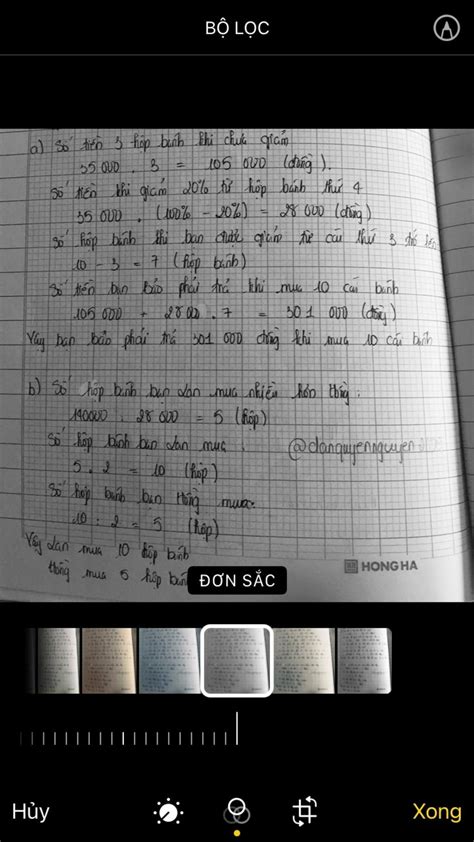 BỘ LỌC
a) Số tiền 3 hộp bánh khi chưa giảm
35 000 . 3 = 105 000 (đồng).
Số tiền khi giảm 20% từ hộp bánh thứ 4
35 000 . (100% - 20%) = 28 000 (đồng)
Số hộp bánh khi bạn được giảm từ cái thứ 3 trở lên
10 - 3 = 7 (hộp bánh)
Số tiền bạn Bảo phải trả khi mua 10 cái bánh
105 000 + 28 00 . 7 = 301 000 (đồng)
Vậy bạn bảo phải trả 301 000 đồng khi mua 10 cái bánh
b) Số hộp bánh bạn Lan mua nhiều hơn Hồng.
140000 : 28 000 = 5 (hộp)
Số hộp bánh bạn Lan mua.
@danquyennguyen
5 . 2 = 10 (hộp)
Số hộp bánh bạn Hồng mua:
10 : 2 = 5 (hộp)
Vậy Lan mua 10 hộp bánh
HONG HA
Hồng mua 5 hộp bánh
ĐƠN SẮC
Hủy
Xong